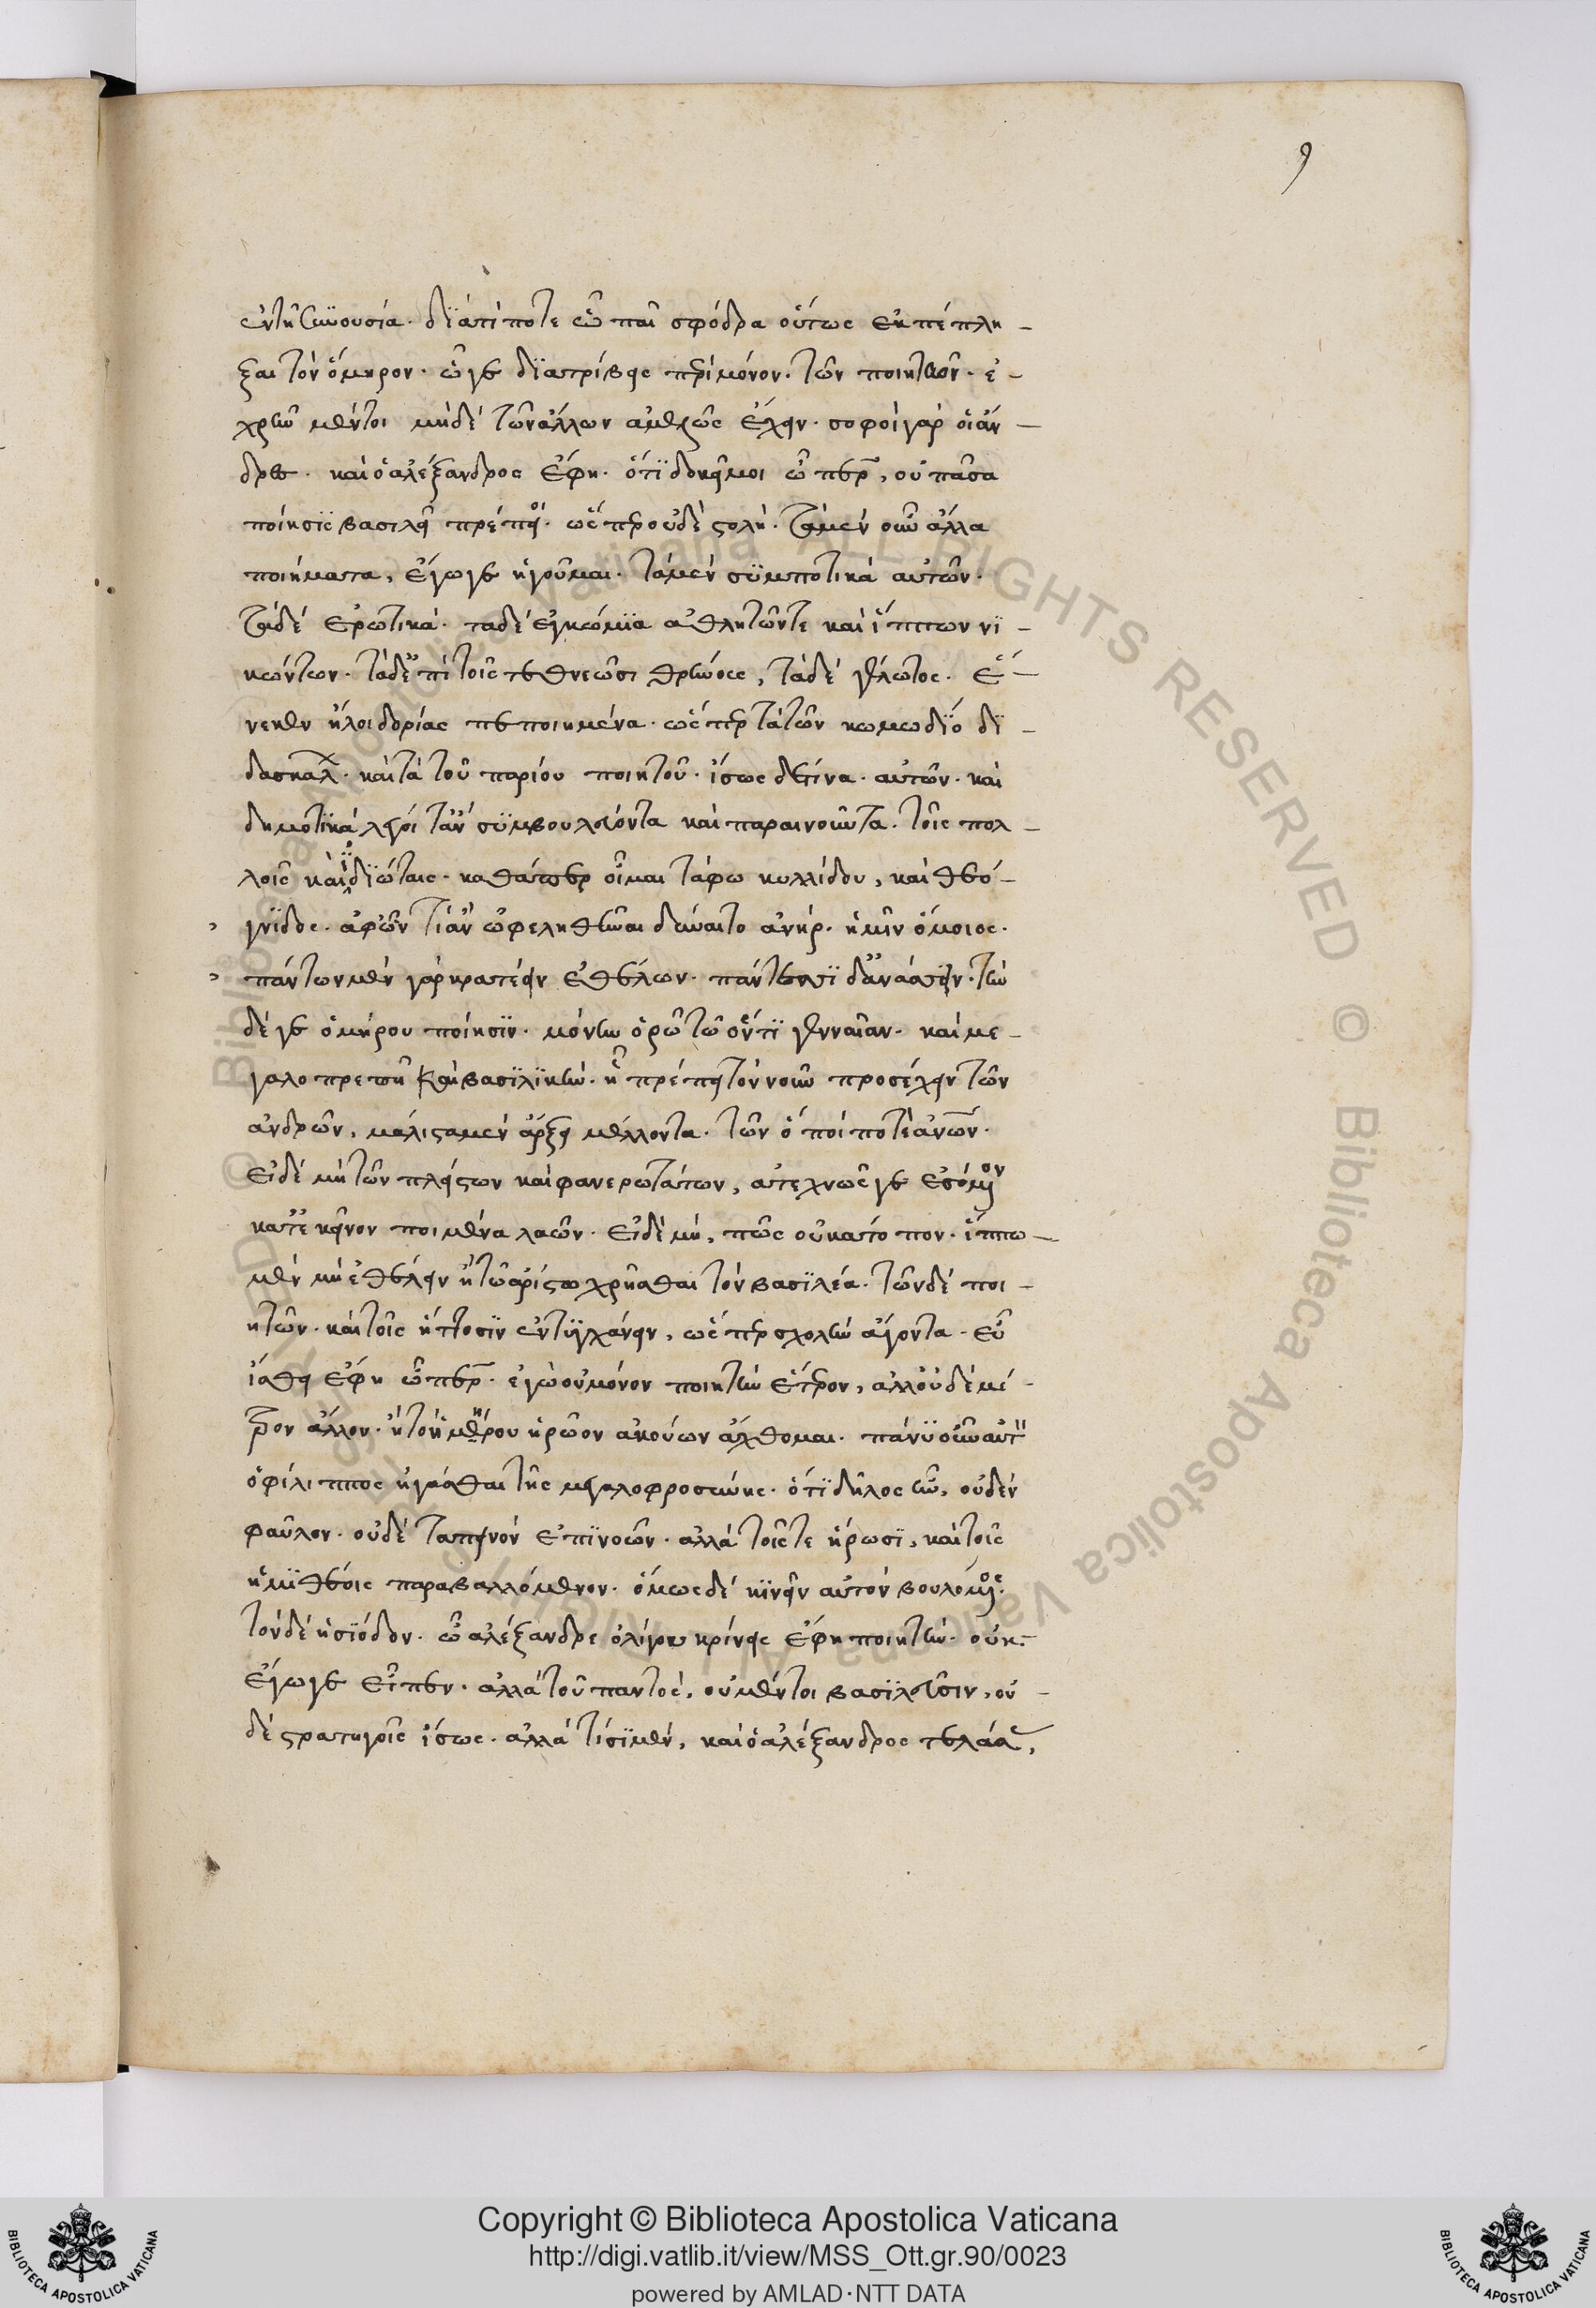 9
ἐν τῆ συνουσία. διατί ποτε ὦ παῖ σφόδρα οὕτως ἐκπέπλη-
ξαι τὸν ὅμηρον. ὥς γε διατρίβεις περὶ μόνον. τῶν ποιητῶν. ἐ-
χρῆν μέντοι μὴ δὲ τῶν ἄλλων ἀμελῶς ἔχειν. σοφοὶ γὰρ οἱ ἄν-
δρες. καὶ ὁ ἀλέξανδρος ἔφη. ὅτι δοκεῖ μοι ὦ περ, οὐ πᾶσα
ποίησις βασιλεῖ πρέπειν. ὥσπερ οὐδὲ στολή. τὰ μὲν οὖν ἄλλα
ποιήματα, ἔγωγε ἡγοῦμαι. τὰ μὲν συμποτικὰ αὐτῶν.
τὰ δὲ ἐρωτικά. τὰ δὲ ἐγκώμια ἀθλητῶν τε καὶ ἵππων νι-
κώντων. τὰ δ' ἐπὶ τοῖς τεθνεῶσι θρήνους, τὰ δὲ γέλωτος. ἕ-
νεκεν ἢ λοιδορίας πεποιημένα. ὥσπερ τὰ τῶν κωμωδιο δι-
δασκαλ. καὶ τὰ τοῦ παρίου ποιητοῦ. ἴσως δέ τινα. αὐτῶν. καὶ
δημοτικὰ λέγοιτ' ἂν συμβουλεύοντα καὶ παραινοῦντα. τοῖς πολ-
λοῖς καὶ ἰδιώταις. καθάπερ οἶμαι τὰ φωκυλλίδου, καὶ θεό-
γνιδος. ἀφ' ὧν τί ἂν ὠφεληθῆναι δύναιτο ἀνήρ. ἡμῖν ὅμοιος.
πάντων μὲν γὰρ κρατέειν ἐθέλων. πάντεσσι δ' ἀνάσσειν. τὴν
δέ γε ὁμήρου ποίησιν. μόνην ὁρῶ τῶ ὄντι γενναῖαν. καὶ με-
γαλοπρεπῆ καὶ βασιλικήν. ἧ πρέπει τὸν νοῦν προσέχειν τῶν
ἀνδρῶν, μάλιστα μὲν ἄρξειν μέλλοντα. τῶν ὅποι ποτὲ ἀνων.
εἰ δὲ μὴ τῶν πλείστων καὶ φανερωτάτων, ἀτεχνῶς γε ἐσόμενον
κατ' ἐκεῖνον ποιμένα λαῶν. εἰ δὲ μή, πῶς οὐκ ἄτοπον. ἵππω-
μὲν μὴ ἐθέλειν ἢ τῶ ἀρίστω χρῆσθαι τὸν βασιλέα. τῶν δὲ ποι-
ητῶν. καὶ τοῖς ἥττοσιν ἐντυγχάνειν, ὥσπερ σχολὴν ἄγοντα. εὖ
ἴσθι ἔφη ὦ περ. ἐγὼ οὐ μόνον ποιητὴν ἕτερον, ἀλλ' οὐδὲ μέ-
τρον ἄλλον. ἢ τὸ ὁμήρου ἡρῶον ἀκούων ἄχθομαι. πάνυ οὖν αὐτ
ὁ φίλιππος ἠγάσθαι τῆς μεγαλοφροσύνης. ὅτι δῆλος ἦν, οὐδὲν
φαῦλον. οὐδὲ ταπεινὸν ἐπινοῶν. ἀλλὰ τοῖς τε ἥρωσι, καὶ τοῖς
ἡμιθέοις παραβαλλόμενον. ὅμως δὲ κινεῖν αὐτὸν βουλόμενος.
τὸν δὲ ἡσίοδον. ὦ ἀλέξανδρε ὀλίγου κρίνεις ἔφη ποιητήν. οὐκ.
ἔγωγε εἶπεν. ἀλλὰ τοῦ παντός, οὐ μέντοι βασιλεῦσιν, οὐ-
δὲ στρατηγοῖς ἴσως. ἀλλὰ τίσι μὲν, καὶ ὁ ἀλέξανδρος γελάσας,
Copyright © Biblioteca Apostolica Vaticana
http://digi.vatlib.it/view/MSS_Ott.gr.90/0023
powered by AMLAD·NTT DATA